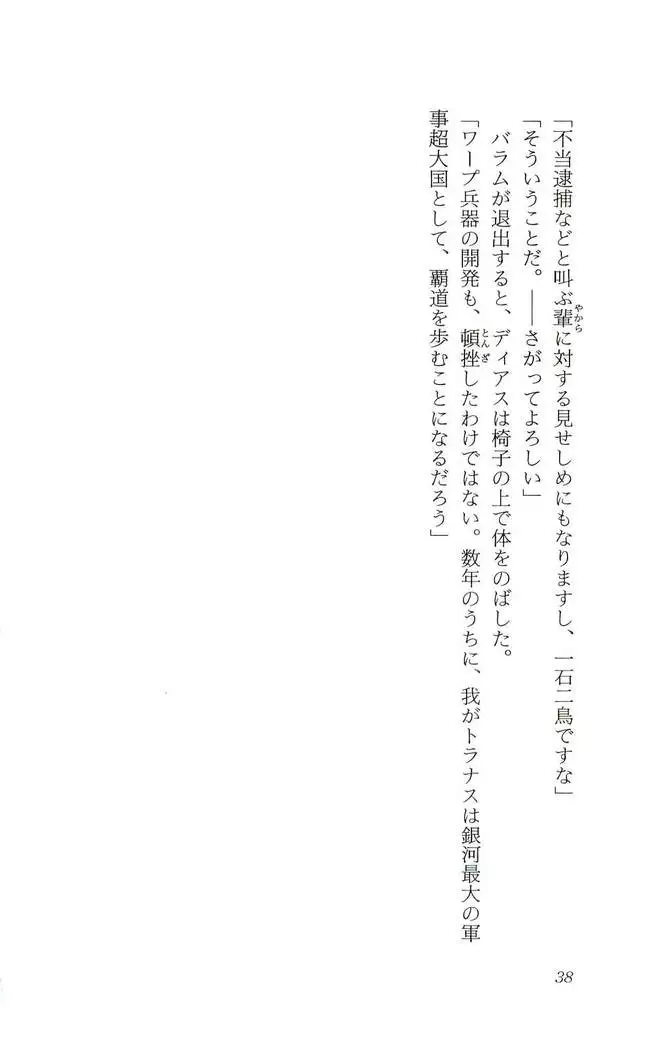 「不当逮捕などと叫ぶ輩に対する見せしめにもなりますし、一石二鳥ですな」
やから
「そういうことだ。――さがってよろしい」
バラムが退出すると、ディアスは椅子の上で体をのばした。
「ワープ兵器の開発も、頓挫したわけではない。数年のうちに、我がトラナスは銀河最大の軍
とんざ
事超大国として、覇道を歩むことになるだろう」
38